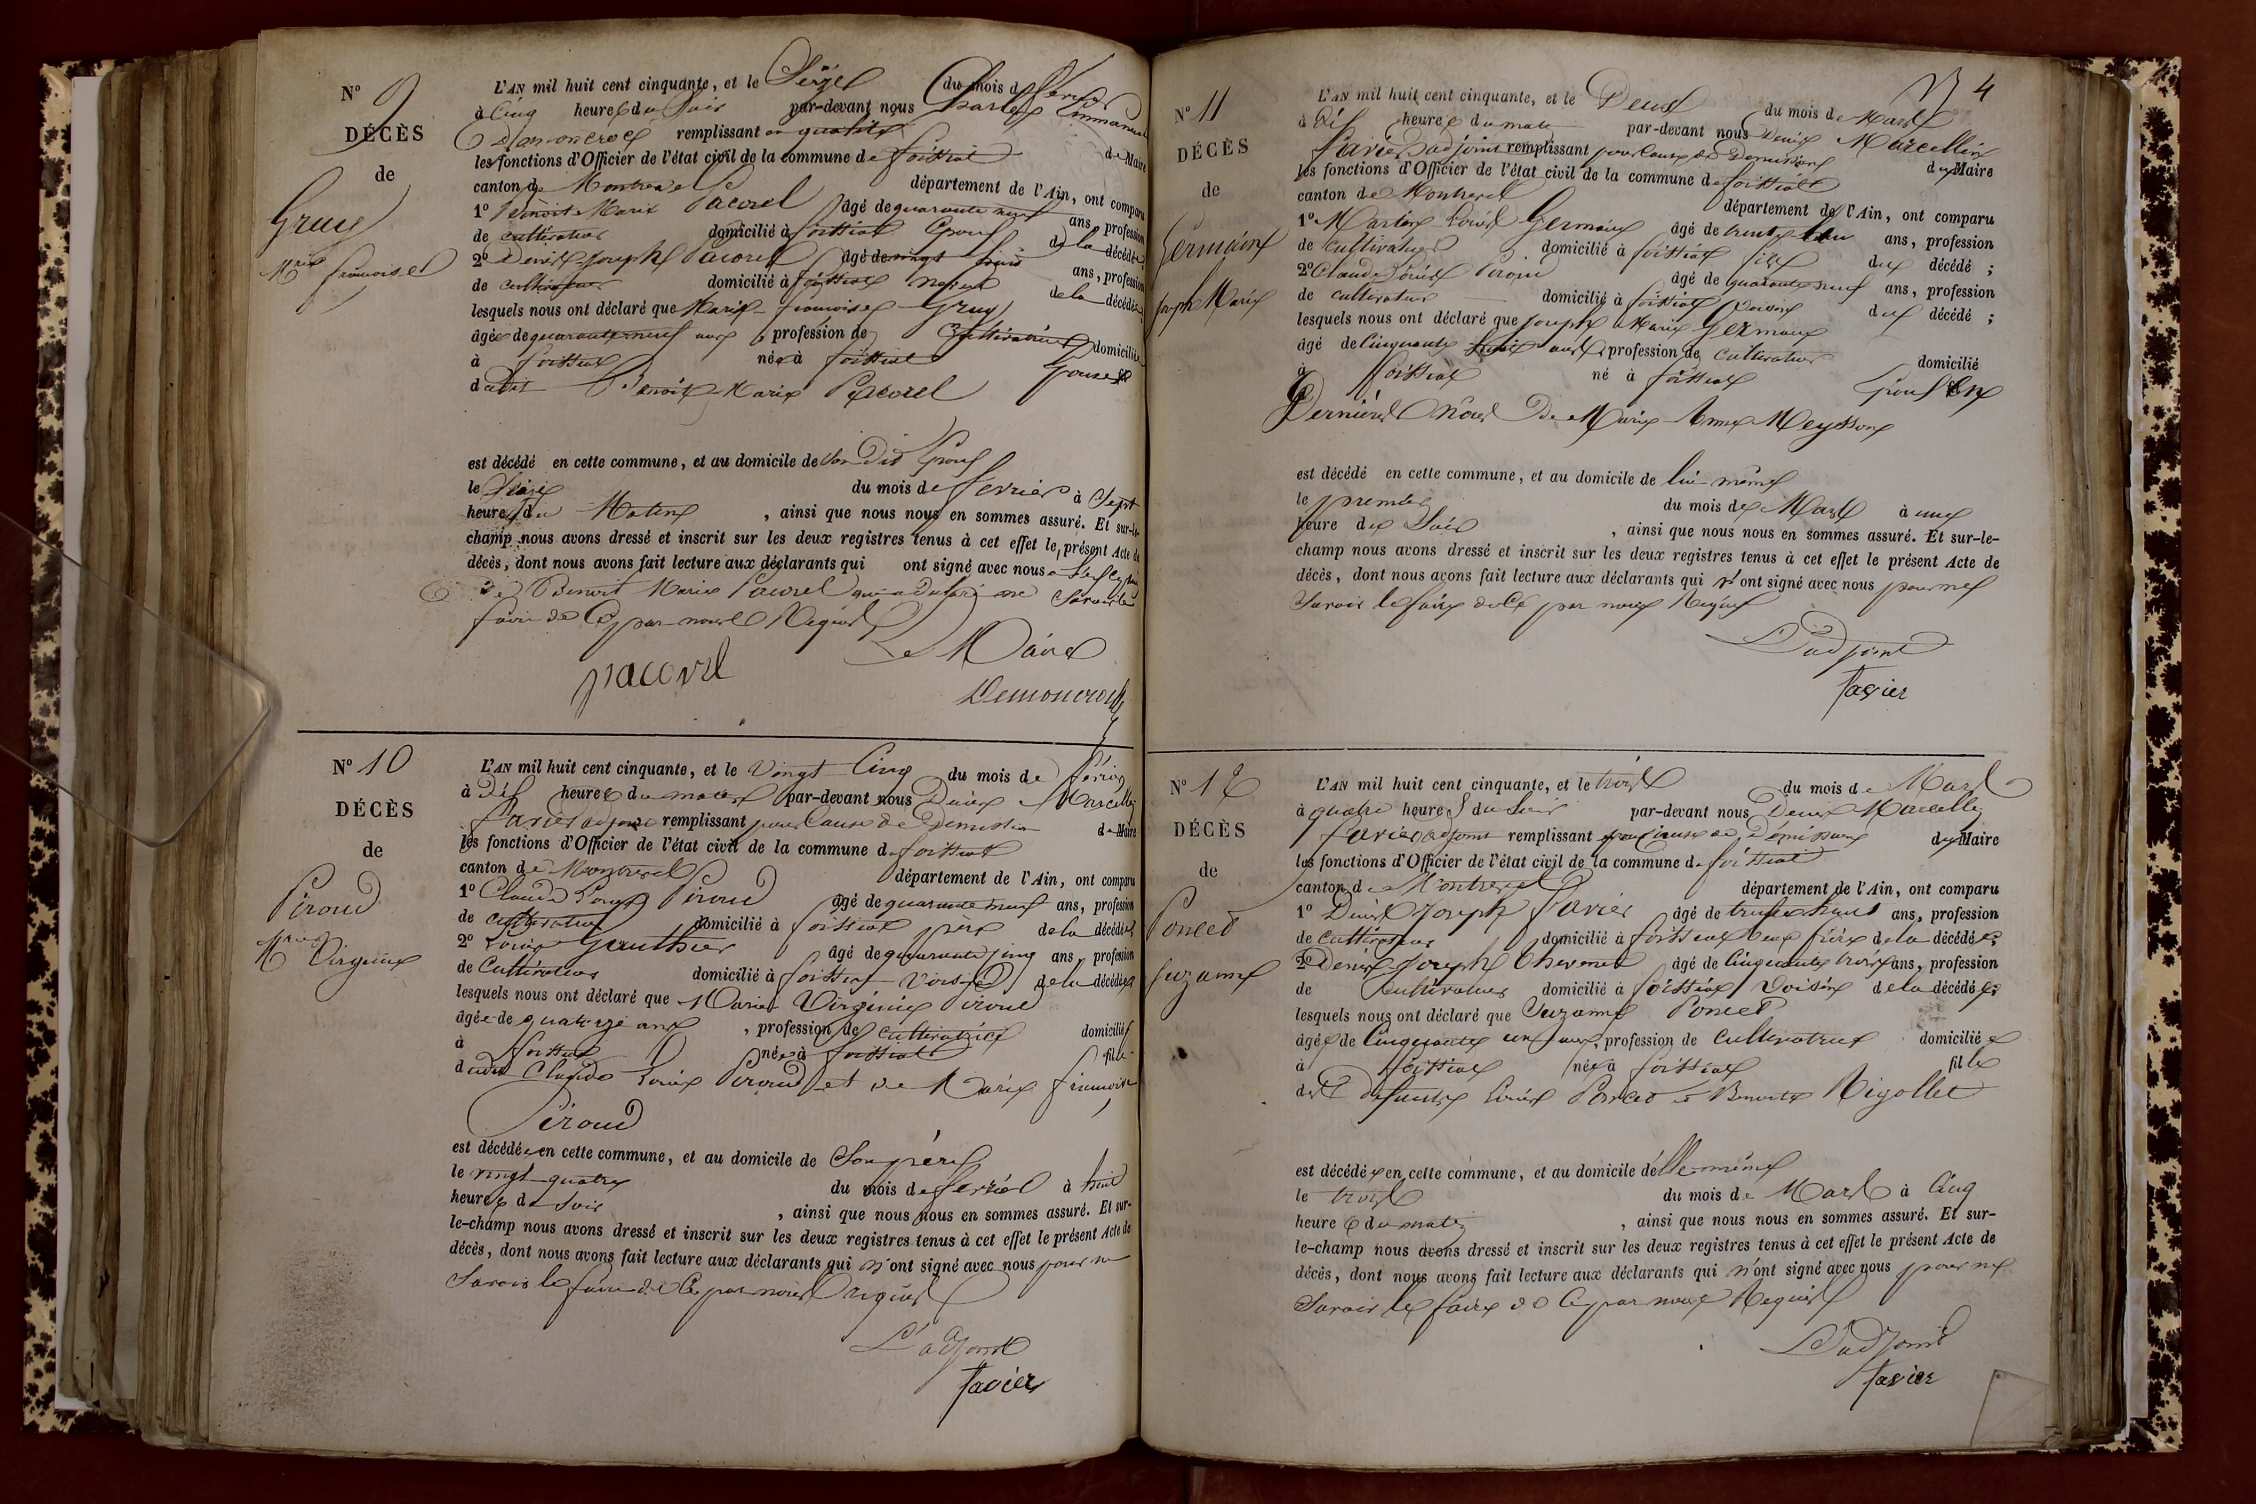 N° 9
DÉCÈS
de
Gruy
Marie françoise
L'AN mil huit cent cinquante, et le Seize du mois de février
à Cinq heures du Soir par-devant nous Charles Emmanuel
Demoncroc remplissant en qualité de Maire
les fonctions d'Officier de l'état civil de la commune de foissiat
canton de Montrevel département de l'Ain, ont comparu
1° Benoit Marie Pacorel âgé de quarante neuf ans, profession
de cultivateur domicilié à foissiat Epoux de la décédée
2° Denis Joseph Pacorel âgé de vingt trois ans, profession
de cultivateur domicilié à foissiat neveu de la décédée
lesquels nous ont déclaré que Marie françoise Gruy
âgée de quarante neuf ans, profession de Cultivatrice domiciliée
à foissiat née à foissiat Epouse
dudit Benoit Marie Pacorel
est décédé en cette commune, et au domicile de Son Dit Epoux
le Seize du mois de février à Sept
heures du Matin, ainsi que nous nous en sommes assuré. Et sur-le-
champ nous avons dressé et inscrit sur les deux registres tenus à cet effet le présent Acte de
décès, dont nous avons fait lecture aux déclarants qui ont signé avec nous
de Benoit Marie Pacorel qui a déclaré ne Savoir le
faire de Ce par nous Requis
pacorel Le Maire
Demoncroc
N° 10
DÉCÈS
de
Piroud
Marie Virginie
L'AN mil huit cent cinquante, et le Vingt Cinq du mois de février
à Dix heures du matin par-devant nous Denis Marcellin
favier adjoint remplissant pour Cause de Demission du Maire
les fonctions d'Officier de l'état civil de la commune de foissiat
canton de Montrevel département de l'Ain, ont comparu
1° Claude Louis Piroud âgé de quarante neuf ans, profession
de cultivateur domicilié à foissiat père de la décédée
2° Louis Gauthier âgé de quarante cinq ans, profession
de Cultivateur domicilié à foissiat Voisin de la décédée
lesquels nous ont déclaré que Marie Virginie Piroud
âgée de quatorze ans, profession de cultivatrice domiciliée
à foissiat née à foissiat fille
dudit Claude Louis Piroud et de Marie françoise
Piroud
est décédée en cette commune, et au domicile de Son père
le vingt quatre du mois de février à huit
heures du Soir, ainsi que nous nous en sommes assuré. Et sur-
le-champ nous avons dressé et inscrit sur les deux registres tenus à cet effet le présent Acte de
décès, dont nous avons fait lecture aux déclarants qui n'ont signé avec nous pour ne
Savoir le faire de Ce par nous Requis
L'adjoint
favier
4
N° 11
DÉCÈS
de
Germain
Joseph Marie
L'AN mil huit cent cinquante, et le Deux du mois de Mars
à Dix heures du matin par-devant nous Denis Marcellin
favier adjoint remplissant pour Cause de Demission du Maire
les fonctions d'Officier de l'état civil de la commune de foissiat
canton de Montrevel département de l'Ain, ont comparu
1° Marie Louis Germain âgé de trente ans, profession
de cultivateur domicilié à foissiat fils du décédé ;
2° Claude Louis Piroud âgé de quarante neuf ans, profession
de cultivateur domicilié à foissiat Voisin du décédé ;
lesquels nous ont déclaré que Joseph Marie Germain
âgé de Cinquante huit ans, profession de cultivateur domicilié
à foissiat né à foissiat Epoux En
Dernières Nôces De Marie Anne Meysson
est décédé en cette commune, et au domicile de lui même
le premier du mois de Mars à une
heure du Soir, ainsi que nous nous en sommes assuré. Et sur-le-
champ nous avons dressé et inscrit sur les deux registres tenus à cet effet le présent Acte de
décès, dont nous avons fait lecture aux déclarants qui n'ont signé avec nous pour ne
Savoir le faire de Ce par nous Requis
L'adjoint
favier
N° 12
DÉCÈS
de
Poncet
Suzanne
L'AN mil huit cent cinquante, et le trois du mois de Mars
à quatre heures du Soir par-devant nous Denis Marcellin
favier adjoint remplissant pour Cause de Démission du Maire
les fonctions d'Officier de l'état civil de la commune de foissiat
canton de Montrevel département de l'Ain, ont comparu
1° Denis Joseph favier âgé de trente huit ans, profession
de cultivateur domicilié à foissiat beau frère de la décédée ;
2° Denis Joseph Thevenet âgé de Cinquante trois ans, profession
de Cultivateur domicilié à foissiat Voisin de la décédée ;
lesquels nous ont déclaré que Suzanne Poncet
âgée de Cinquante un ans, profession de cultivatrice domiciliée
à foissiat née à foissiat fille
des Defunts Louis Poncet et Benoite Rigollet
est décédée en cette commune, et au domicile d'Elle même
le trois du mois de Mars à Cinq
heures du matin, ainsi que nous nous en sommes assuré. Et sur-
le-champ nous avons dressé et inscrit sur les deux registres tenus à cet effet le présent Acte de
décès, dont nous avons fait lecture aux déclarants qui n'ont signé avec nous pour ne
Savoir le faire de Ce par nous Requis
L'adjoint
favier